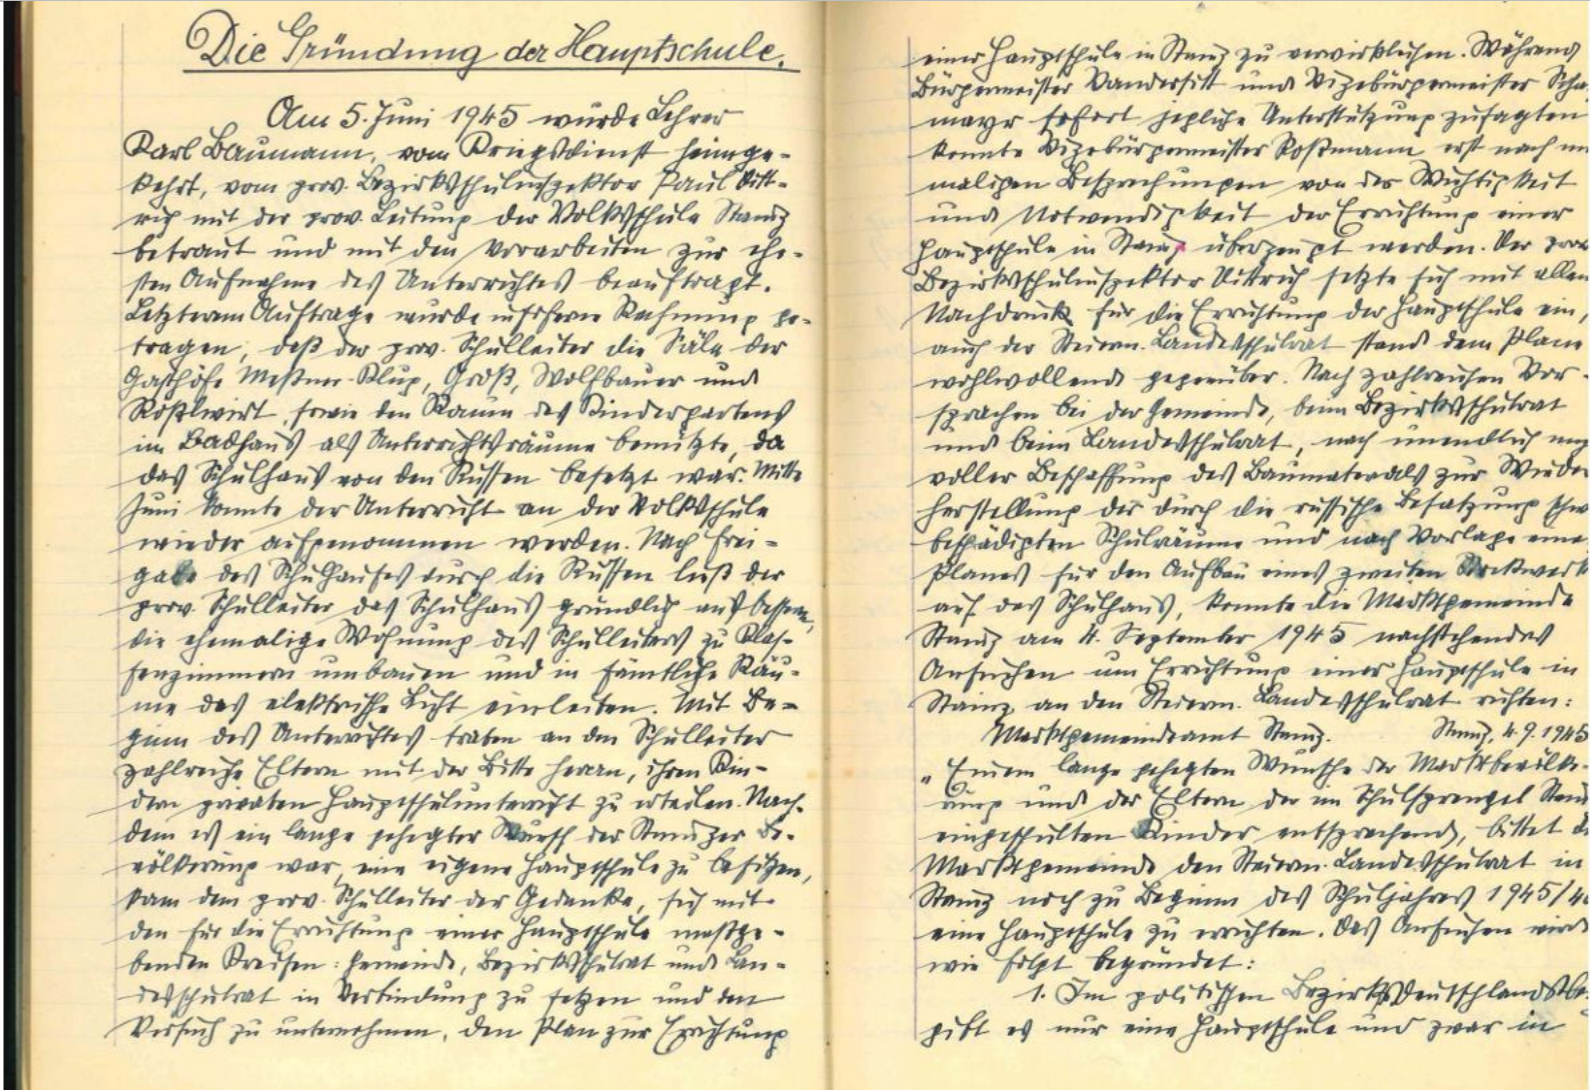 Die Gründung der Hauptschule.
Am 5. Juni 1945 wurde Lehrer
Karl Baumann, vom Kriegsdienst heimge-
kehrt, vom prov. Bezirksschulinspektor Paul Ditt-
rich mit der prov. Leitung der Volksschule Stainz
betraut und mit den Vorarbeiten zur ehe-
sten Aufnahme des Unterrichtes beauftragt.
Letzterem Auftrage wurde insofern Rechnung ge-
tragen, daß der prov. Schulleiter die Säle der
Gasthöfe Meßner-Klug, Groß, Wolfbauer und
Rößlwirt, sowie den Raum des Kindergartens
im Badhaus als Unterrichtsräume benützte, da
das Schulhaus von den Russen besetzt war. Mitte
Juni konnte der Unterricht an der Volksschule
wieder aufgenommen werden. Nach Frei-
gabe des Schulhauses durch die Russen ließ der
prov. Schulleiter das Schulhaus gründlich ausbessern,
die ehemalige Wohnung des Schulleiters zu Klas-
senzimmern umbauen und in sämtliche Räu-
me das elektrische Licht einleiten. Mit Be-
ginn des Unterrichtes traten an den Schulleiter
zahlreiche Eltern mit der Bitte heran, ihren Kin-
dern privaten Hauptschulunterricht zu erteilen. Nach-
dem es ein lange gehegter Wunsch der Stainzer Be-
völkerung war, eine eigene Hauptschule zu besitzen,
kam dem prov. Schulleiter der Gedanke, sich mit
den für die Errichtung einer Hauptschule maßge-
benden Kreisen: Gemeinde, Bezirksschulrat und Lan-
desschulrat in Verbindung zu setzen und den
Versuch zu unternehmen, den Plan zur Errichtung
einer Hauptschule in Stainz zu verwirklichen. Während
Bürgermeister Vandersitt und Vizebürgermeister Scha
mayr sofort jegliche Unterstützung zusagten
konnte Vizebürgermeister Roßmann erst nach
maligen Besprechungen von der Wichtigkeit
und Notwendigkeit der Errichtung einer
Hauptschule in Stainz überzeugt werden. Der prov
Bezirksschulinspektor Dittrich setzte sich mit allem
Nachdruck für die Errichtung der Hauptschule ein,
auch der Steierm. Landesschulrat stand dem Plane
wohlwollend gegenüber. Nach zahlreichen Vor-
sprachen bei der Gemeinde, beim Bezirksschulrat
und beim Landesschulrat, nach unendlich
voller Beschaffung des Baumaterials zur Wieder
herstellung der durch die russische Besatzung schw
beschädigten Schulräume und nach Vorlage eine
Planes für den Aufbau eines zweiten Stockwerk
auf das Schulhaus, konnte die Marktgemeinde
Stainz am 4. September 1945 nachstehendes
Ansuchen um Errichtung einer Hauptschule in
Stainz an den Steierm. Landesschulrat richten:
Marktgemeindeamt Stainz. Stainz, 4.9.1945
„Einem lange gehegten Wunsche der Marktbevölke-
rung und der Eltern der im Schulsprengel Stain
eingeschulten Kinder entsprechend, bittet di
Marktgemeinde den Steierm. Landesschulrat in
Stainz noch zu Beginn des Schuljahres 1945/46
eine Hauptschule zu errichten. Das Ansuchen wird
wie folgt begründet:
1. Im politischen Bezirk Deutschlandsbe
gibt es nur eine Hauptschule und zwar in